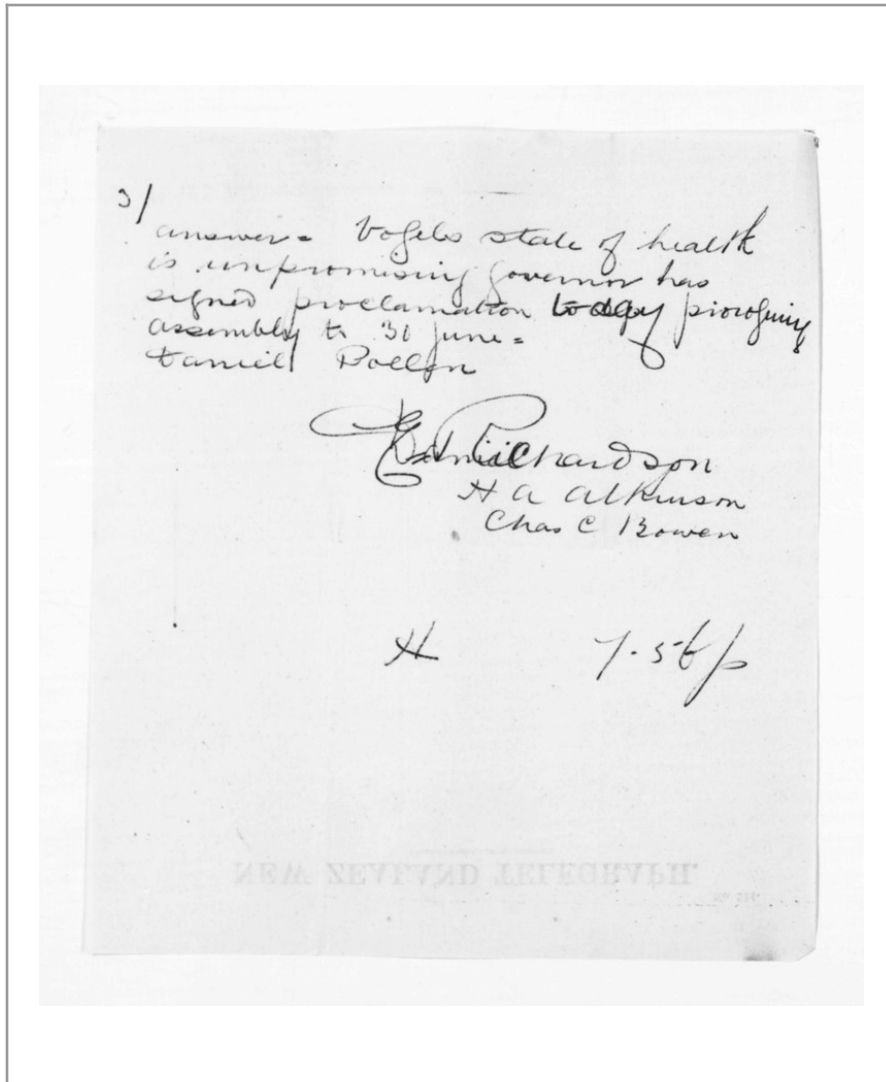 3/
answer = Vogels state of health
is unpromising governor has
signed proclamation today proroguing
assembly to 30 June =
Daniel Pollen
Richardson
H A Atkinson
Chas C Bowen
H 7.56p
NEW ZEALAND TELEGRAPH.